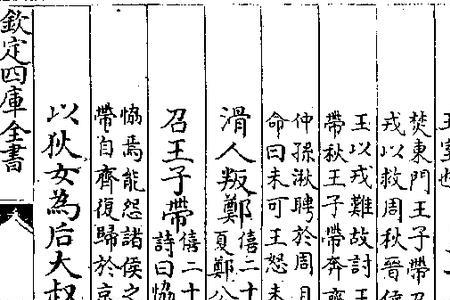 王室也
焚東門王子帶召
戎以救周秋晉侯
王以戎難故討王
帶秋王子帶奔齊
仲孫湫聘於周且
命曰未可王怒未
滑人叛鄭僖二十
夏鄭公
召王子帶僖二十
詩曰協
協焉能怨諸侯之
帶自齊復歸於京
以狄女為后大叔
欽定四庫全書